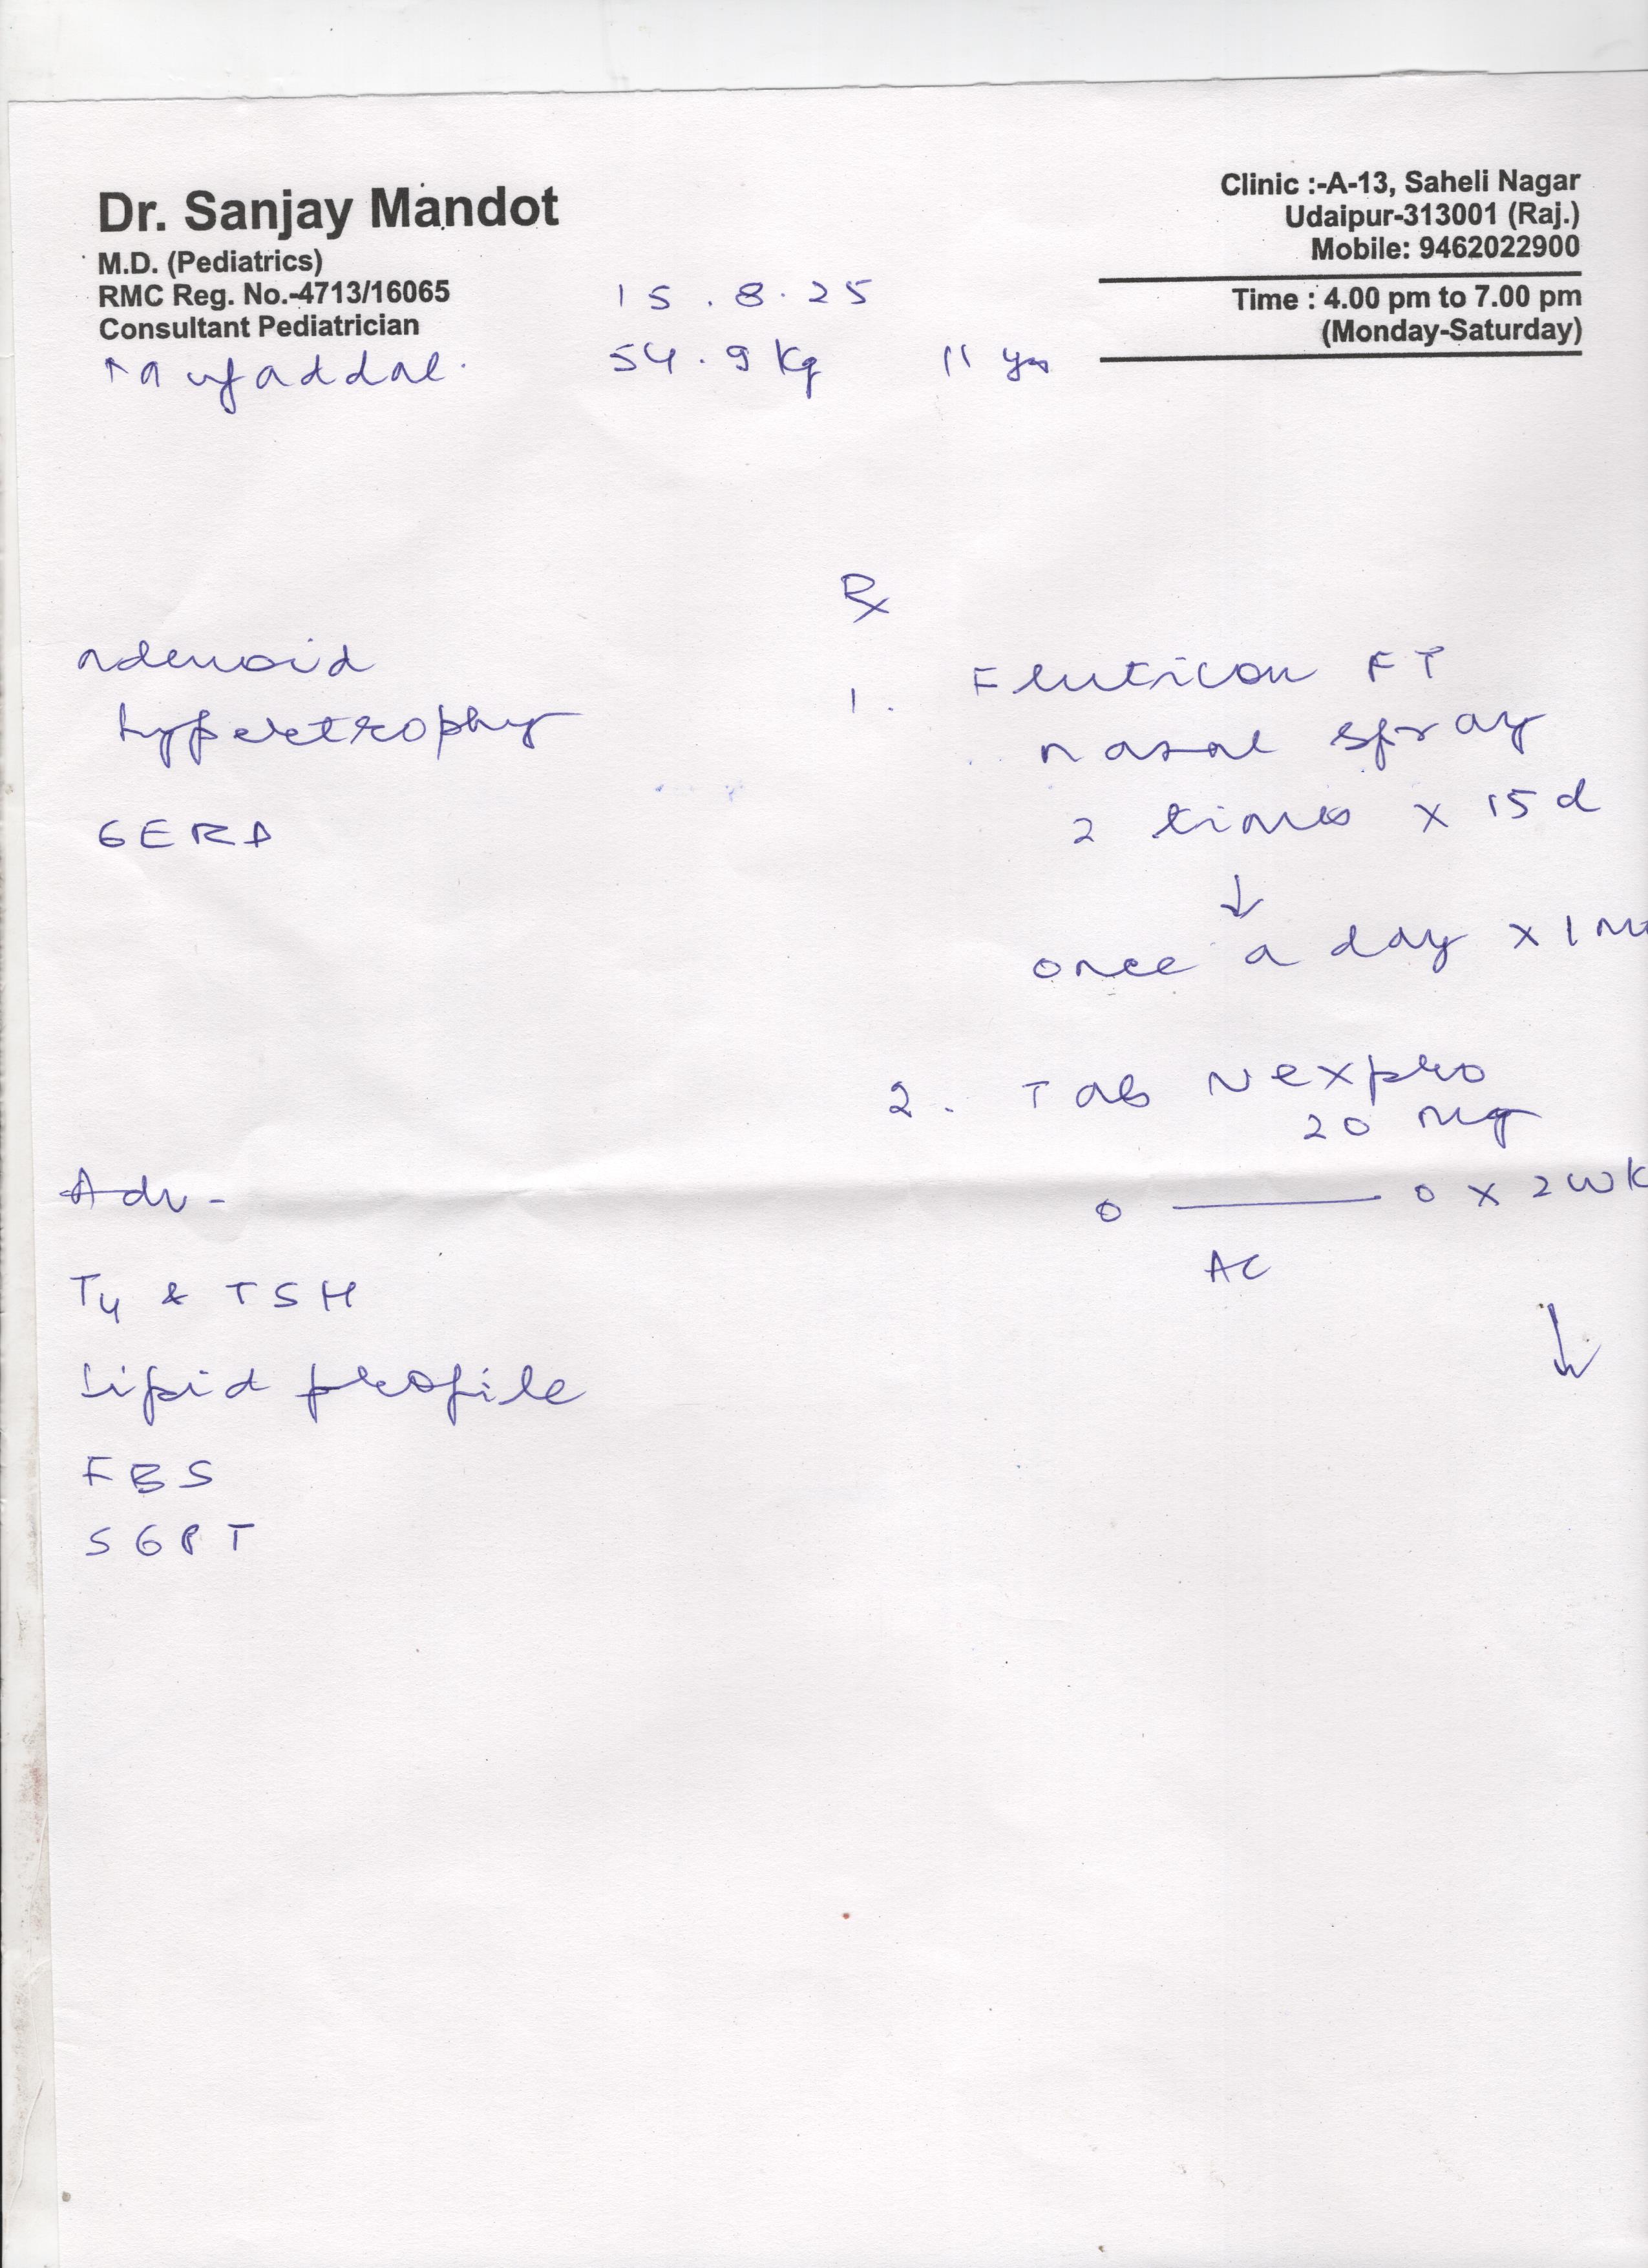 Dr. Sanjay Mandot
M.D. (Pediatrics)
RMC Reg. No.-4713/16065
Consultant Pediatrician
Clinic :-A-13, Saheli Nagar
Udaipur-313001 (Raj.)
Mobile: 9462022900
Time : 4.00 pm to 7.00 pm
(Monday-Saturday)
15.8.25
Mufaddal. 54.9 kg 11 yrs
Rx
adenoid
hypertrophy
GERD
1. Fluticon FT
nasal spray
2 times x 15 d
↓
once a day x 1
2. Tab Nexpro
20 mg
0 — 0 x 2 wk
AC
↓
Adv -
T4 & TSH
Lipid profile
FBS
SGPT